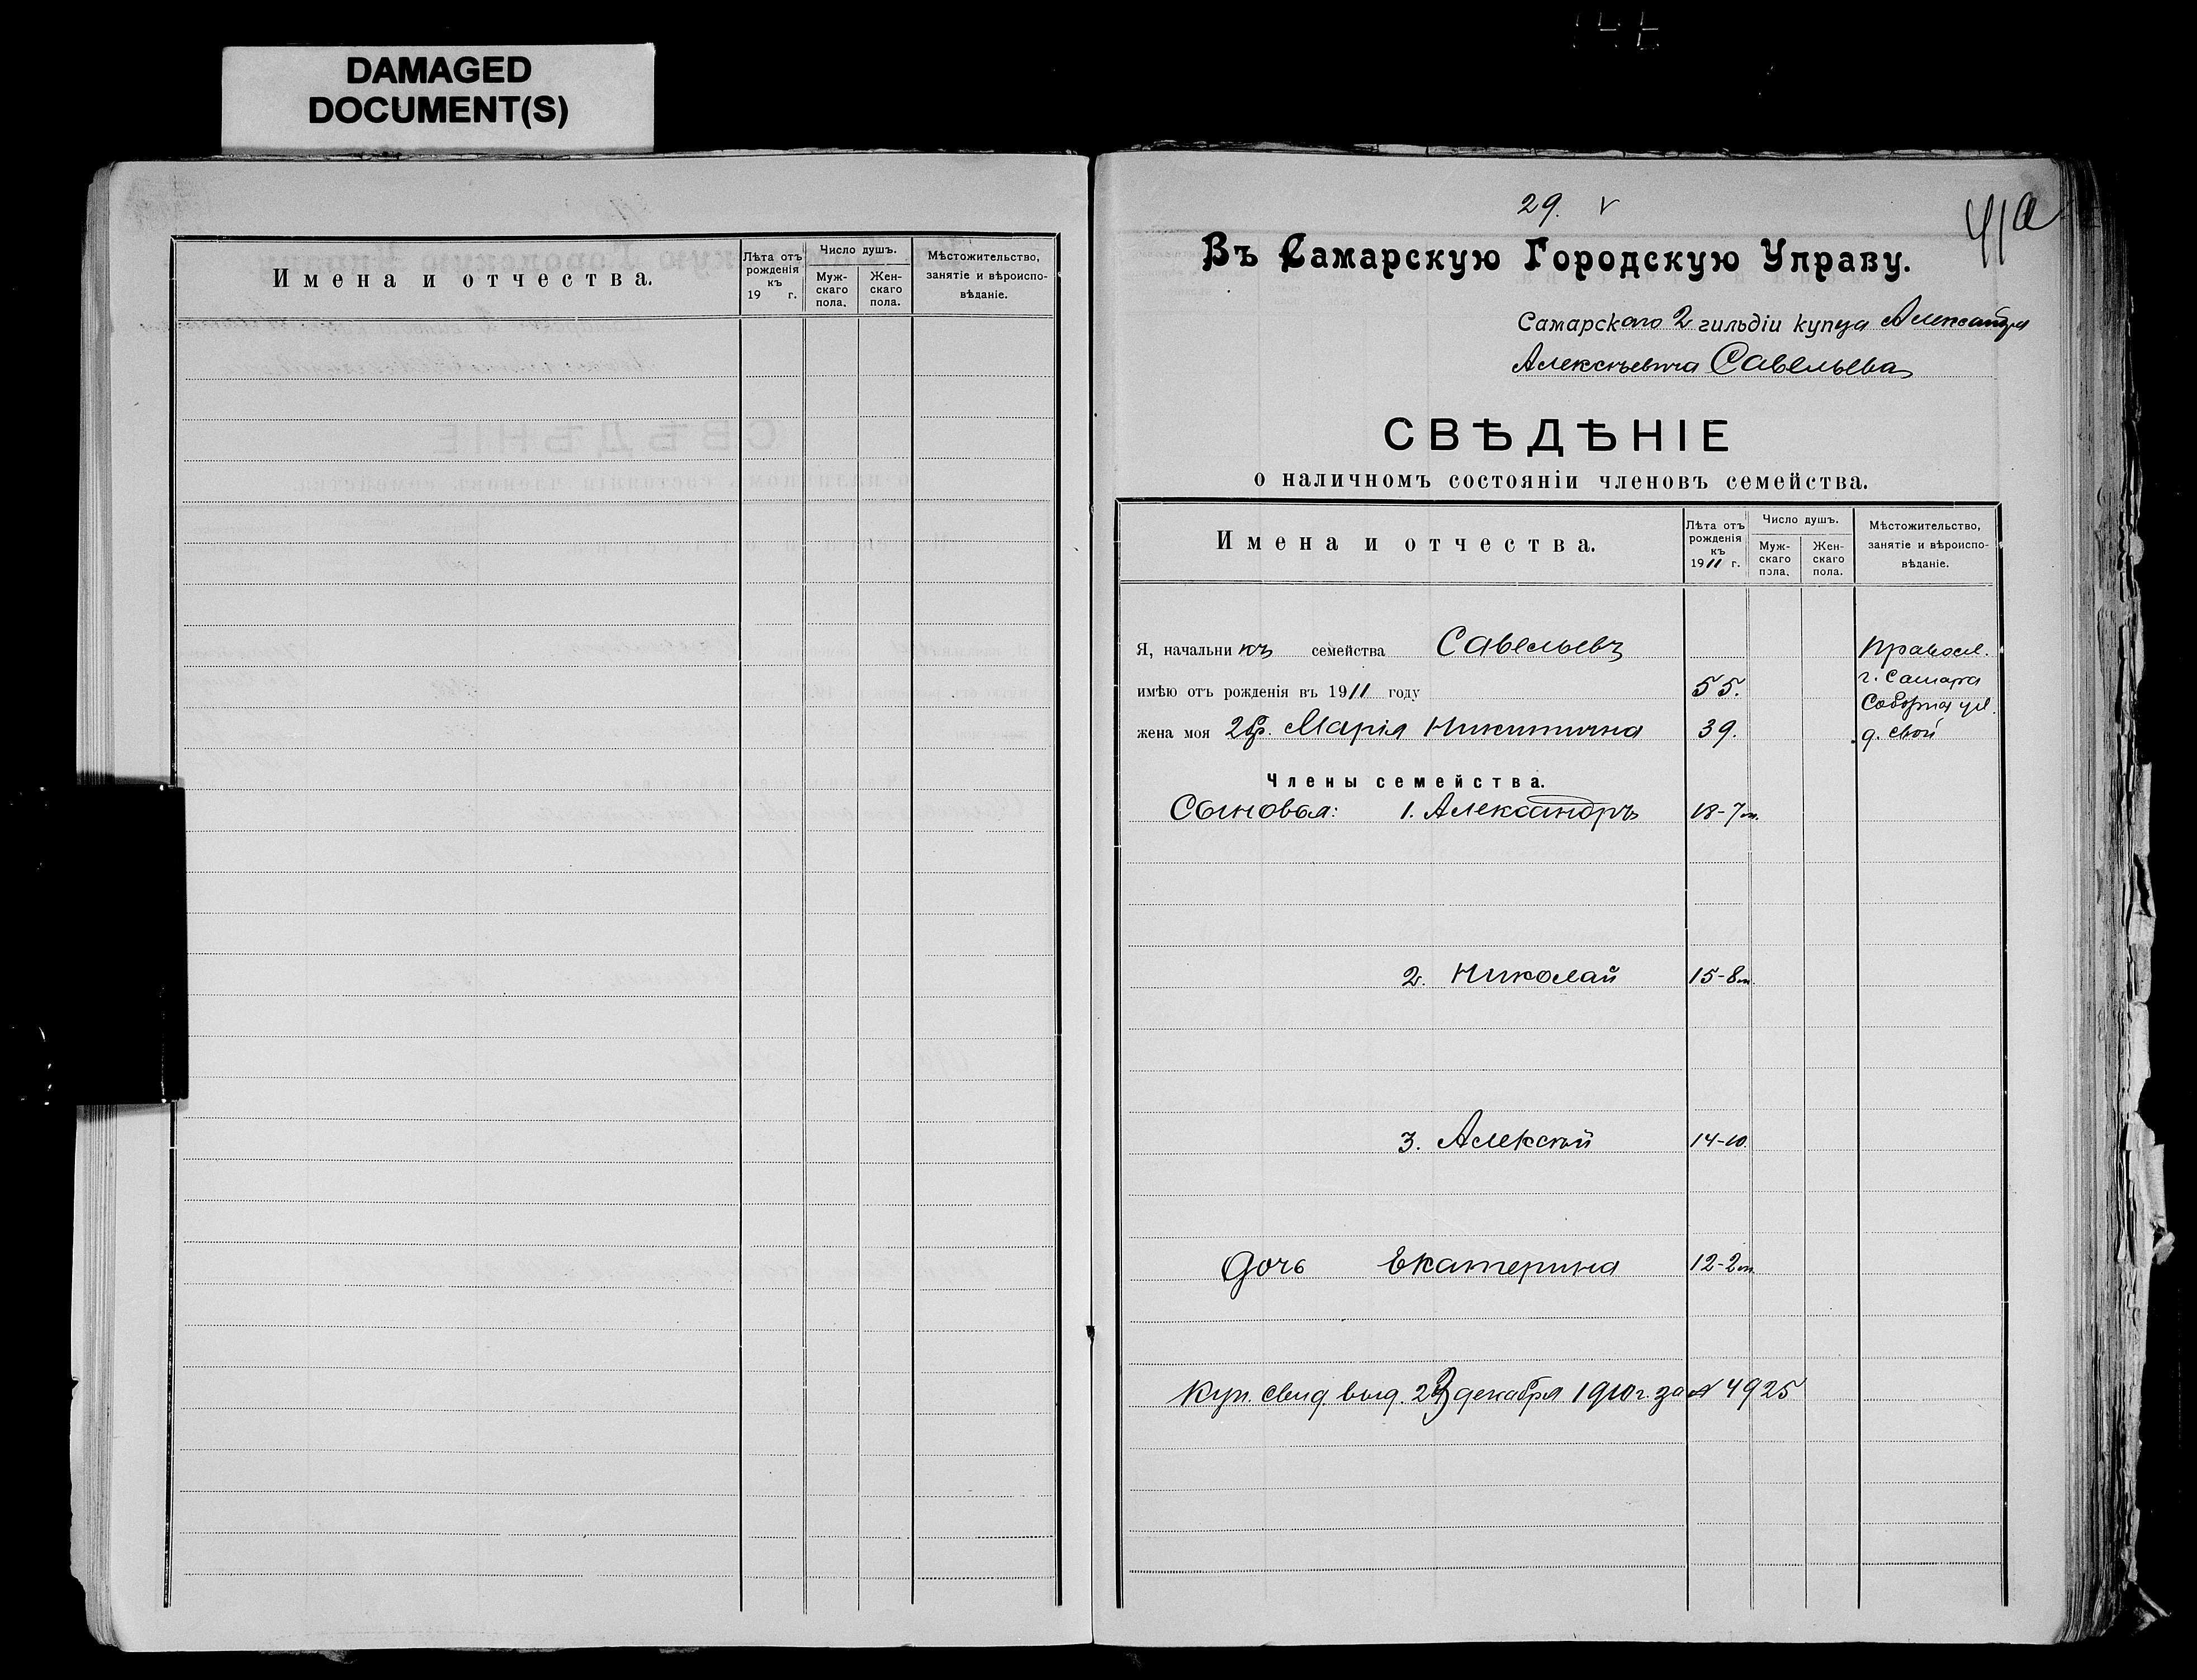 DAMAGED
DOCUMENT(S)
Имена и отчества.
Лѣта отъ рожденія къ 19 г.
Число душъ.
Мужскаго пола.
Женскаго пола.
Мѣстожительство, занятіе и вѣроисповѣданіе.
29. v
41а
Въ Самарскую Городскую Управу.
Самарскаго 2 гильдіи купца Александра
Алексѣевича Савельева
СВѢДѢНІЕ
о наличномъ состояніи членовъ семейства.
Имена и отчества.
Лѣта отъ рожденія къ 1911 г.
Число душъ.
Мужскаго пола.
Женскаго пола.
Мѣстожительство, занятіе и вѣроисповѣданіе.
Я, начальникъ семейства Савельевъ Правосл.
имѣю отъ рожденія въ 1911 году 55. г. Самара
Соборная ул.
жена моя 2 бр. Марія Никитична 39. д. свой
Члены семейства.
Сыновья: 1. Александръ 18-7 м.
2. Николай 15-8 м.
3. Алексѣй 14-10.
Дочь Екатерина 12-2 м.
Куп. свид. выд. декабря 1910 г. за № 4925